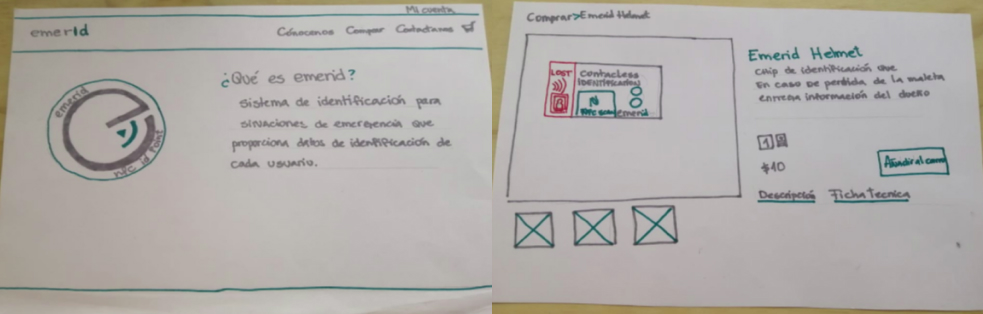 Mi cuenta
emerid
Cónocenos Comprar Contactanos
¿Qué es emerid?
Sistema de identificación para
situaciones de emergencia que
proporciona datos de identificación de
cada usuario.
emerid
NFC id Point
Comprar>Emerid Helmet
LOST
Contacless
IDENTIFICATION
N
emerid
Emerid Helmet
Chip de identificación que
en caso de perdida de la maleta
entrega información del dueño
1
$40
Añadir al carro
Descripción Ficha Tecnica